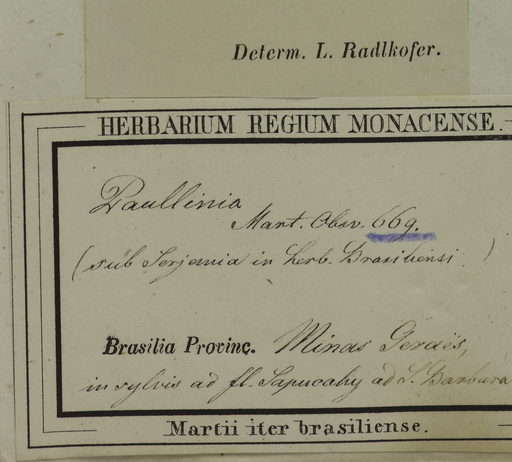 Determ. L. Radlkofer.
HERBARIUM REGIUM MONACENSE.
Paullinia
Mart. Obsv. 669.
(sub Serjania in herb. Brasiliensi)
Brasilia Provinc. Minas Geraës,
in sylvis ad fl. Sapucahy ad S. Barbara
Martii iter brasiliense.